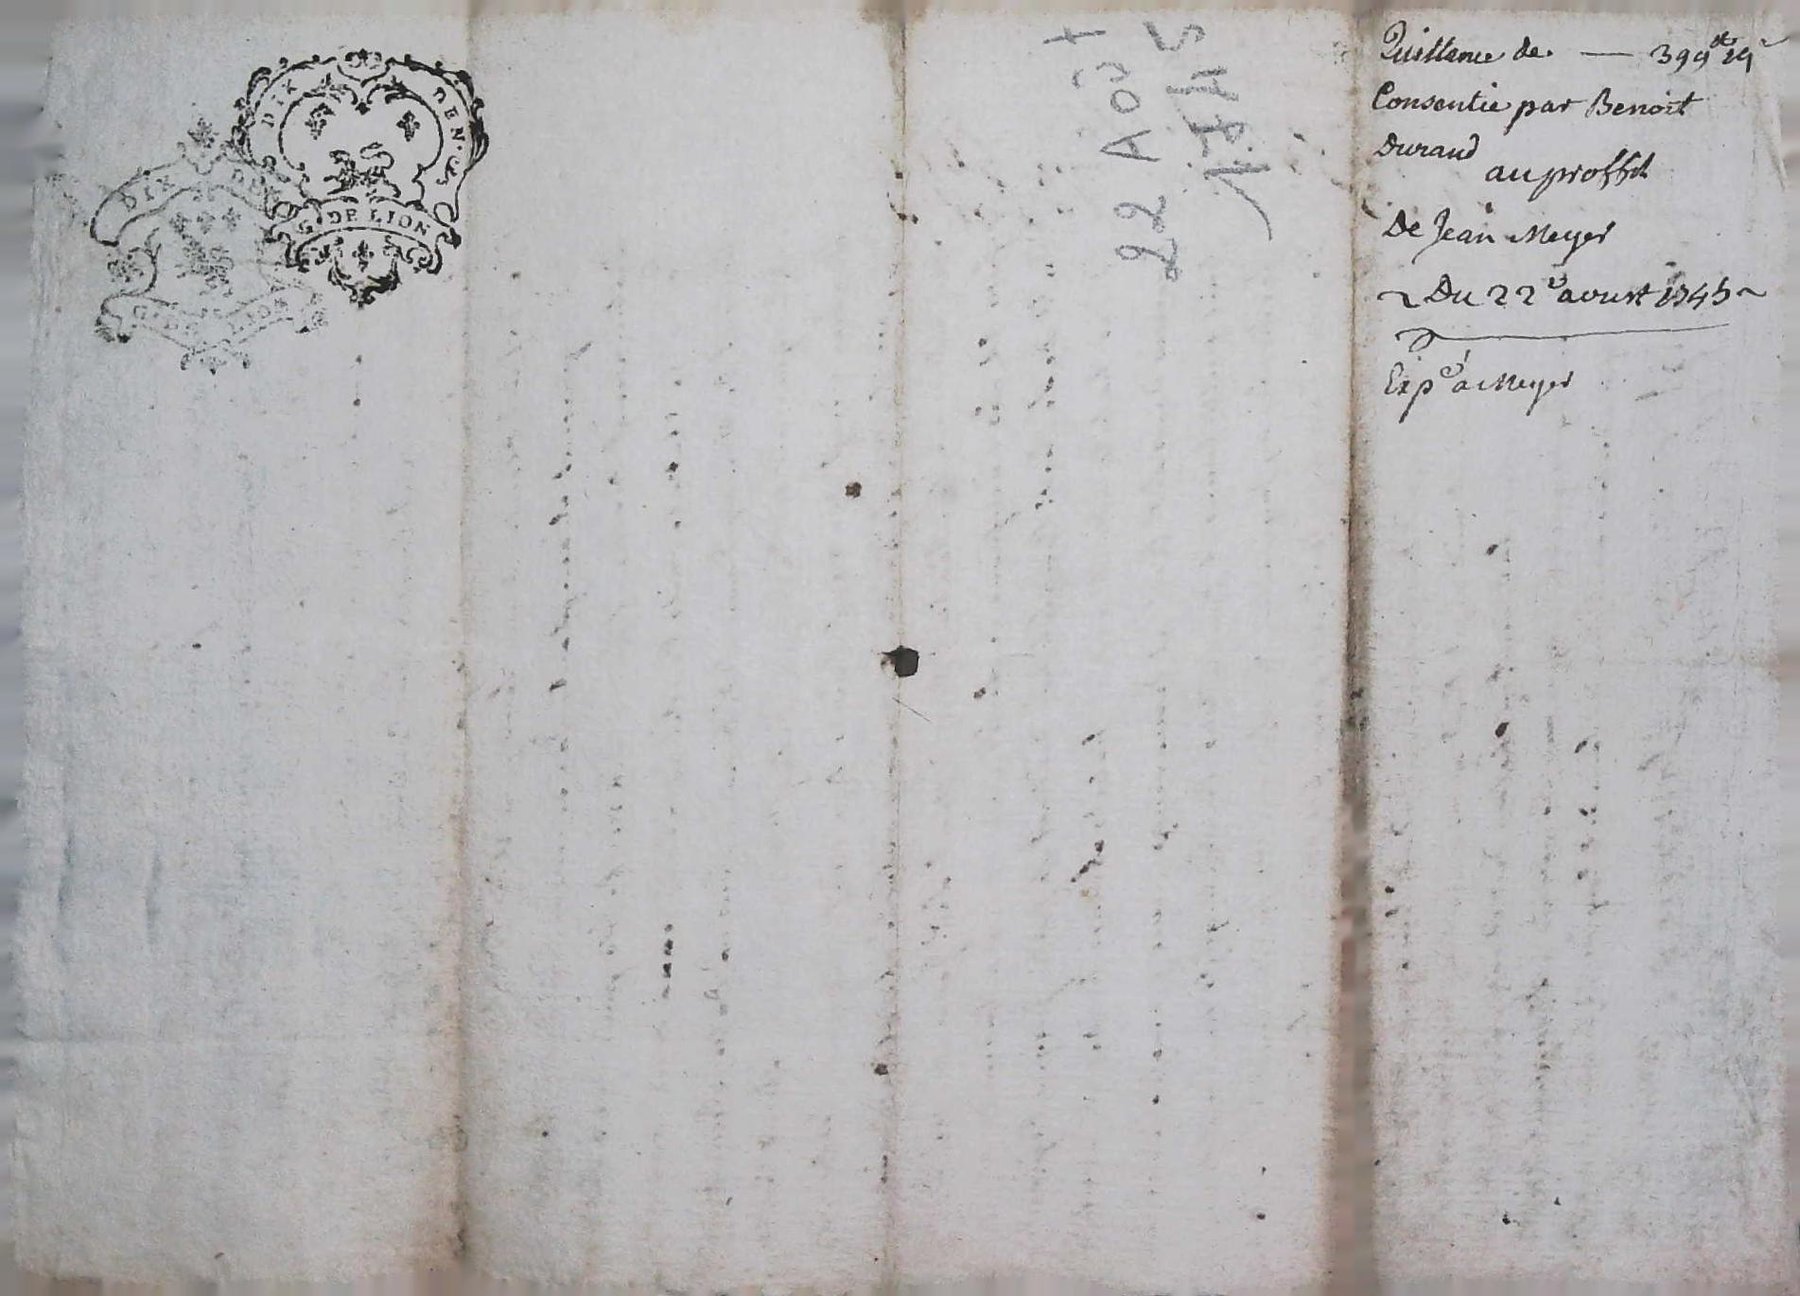 DIX DEN.
G. DE LION
DIX DEN
G. DE LION
22 Aoüt
1745
Quittance de — 399ᵗᵗ 19ˢ
Consentie par Benoit
Durand
au proffit
De Jean Meyer
Du 22ᵉ aoust 1745
Expᵉ a Meyer